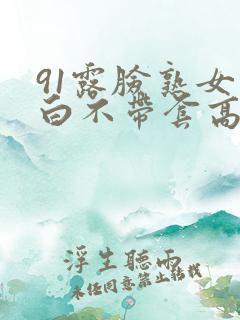 91露脸熟女
白不带套高
浮生聽雨
未经同意禁止转载